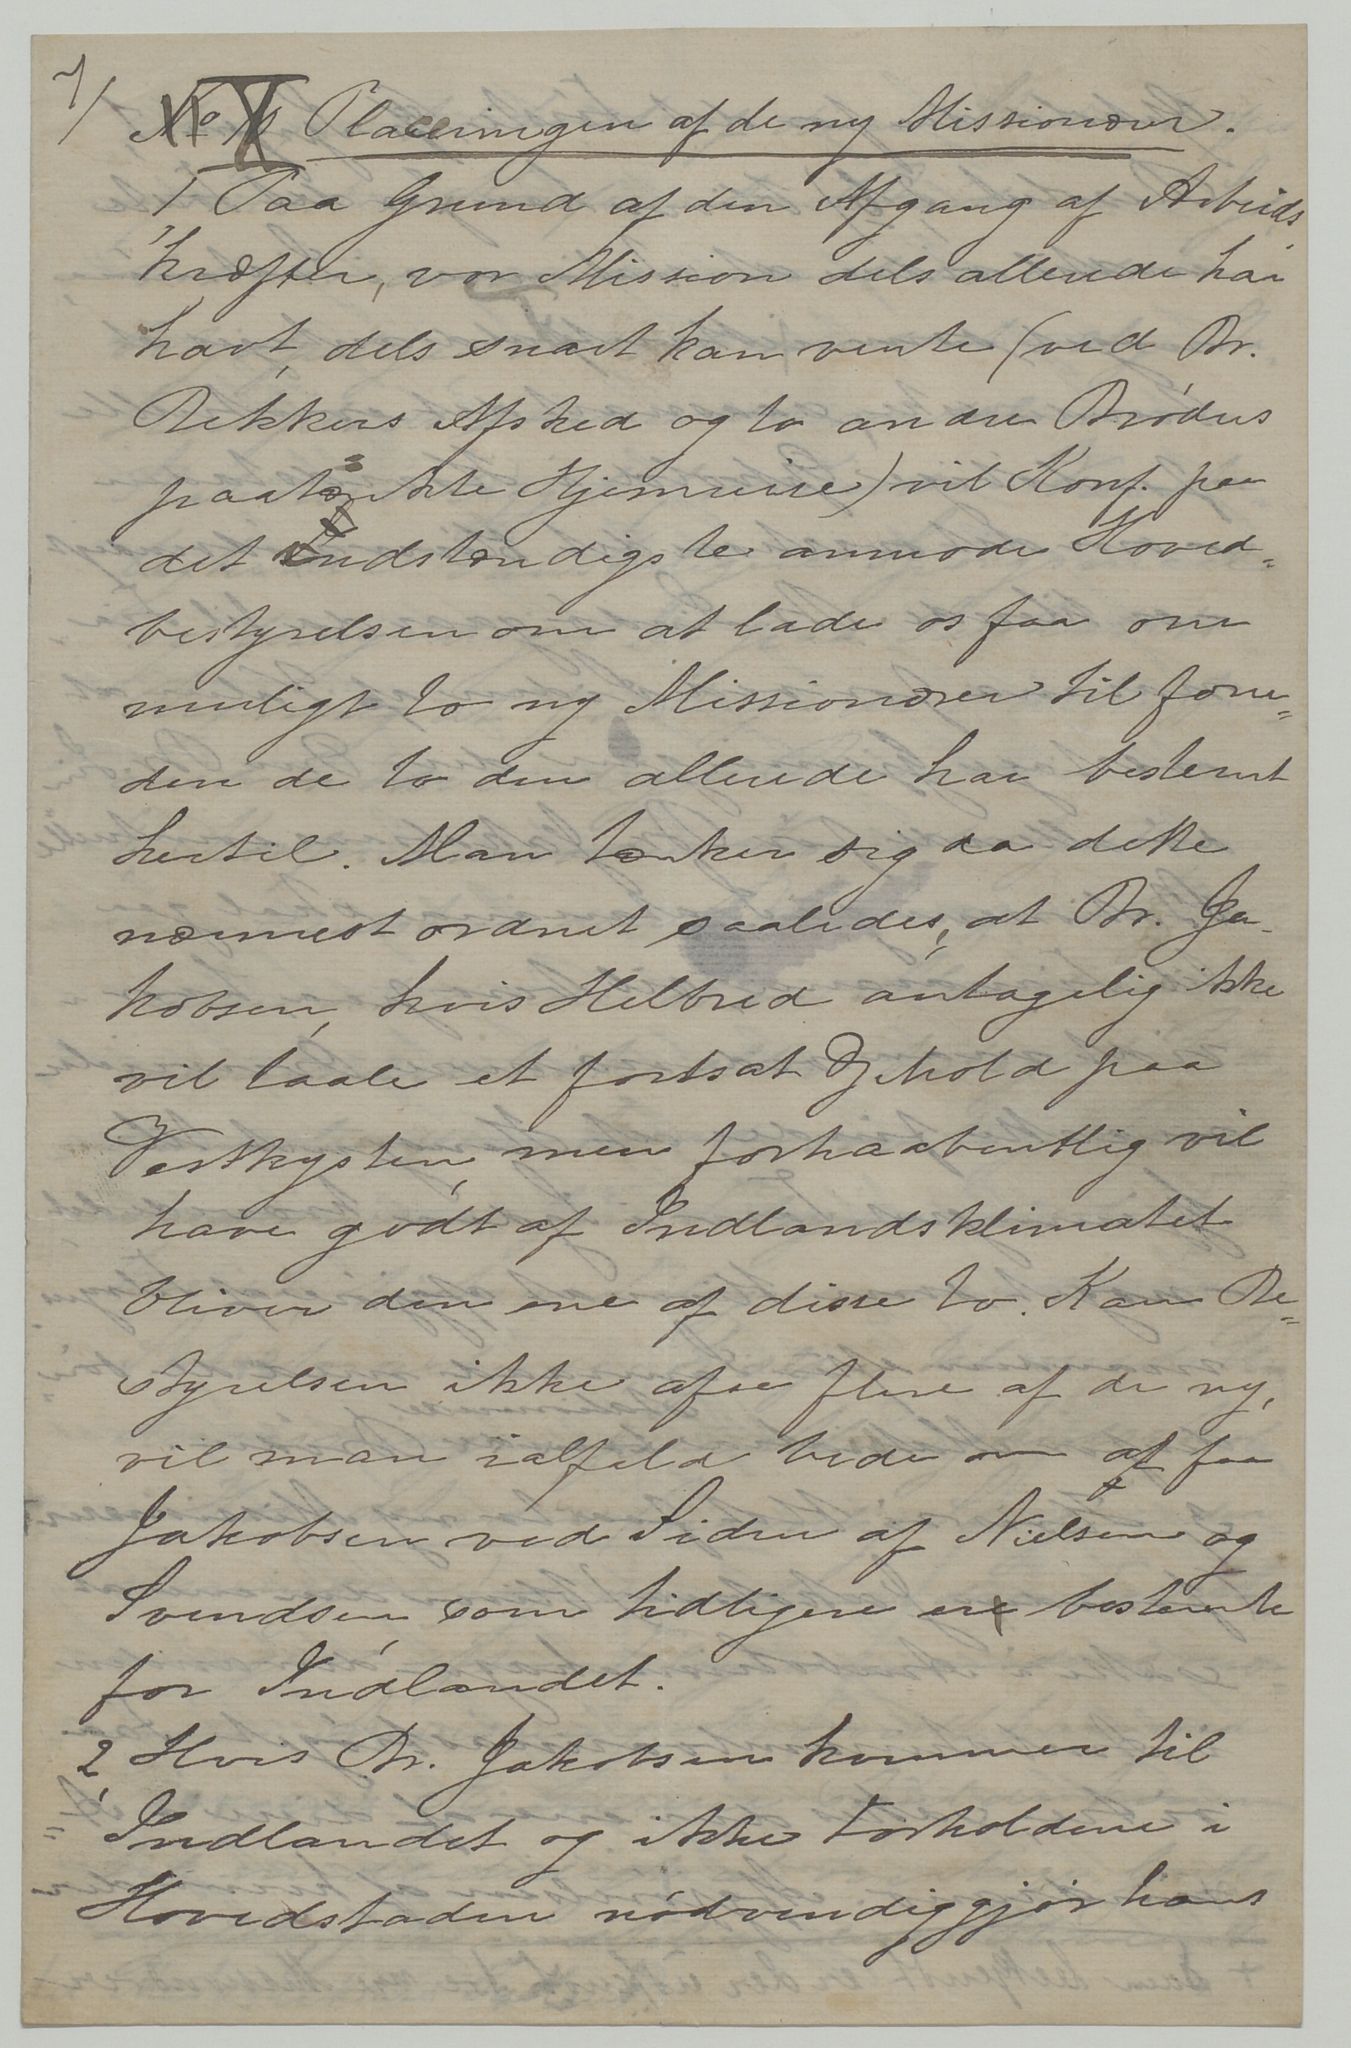 7/
No X Placeringen af de ny Missionærer.
1 Paa Grund af den Afgang af Arbeids
kræfter, vor Mission dels allerede har
havt, dels snart kan vente (ved Br.
Bekkers Afsked og to andre Brødres
paatænkte Hjemreise) vil Konf. paa
det Indstændigste anmode Hoved-
bestyrelsen om at lade os faa om
muligt to ny Missionærer til foru-
den de to den allerede har bestemt
hertil. Man tænker sig da dette
nærmest ordnet saaledes, at Br. Ja-
kobsen, hvis Helbred antagelig ikke
vil taale et fortsat Ophold paa
Vestkysten, men forhaabentlig vil
have godt af Indlandsklimatet
bliver den ene af disse to. Kan Be-
styrelsen ikke afse flere af de ny,
vil man ialfald bede om at faa
Jakobsen ved Siden af Nielsen og
Svendsen, som tidligere ere bestemte
for Indlandet.
2, Hvis Br. Jakobsen kommer til
Indlandet og ikke Forholdene i
Hovedstaden nødvendiggjør hans